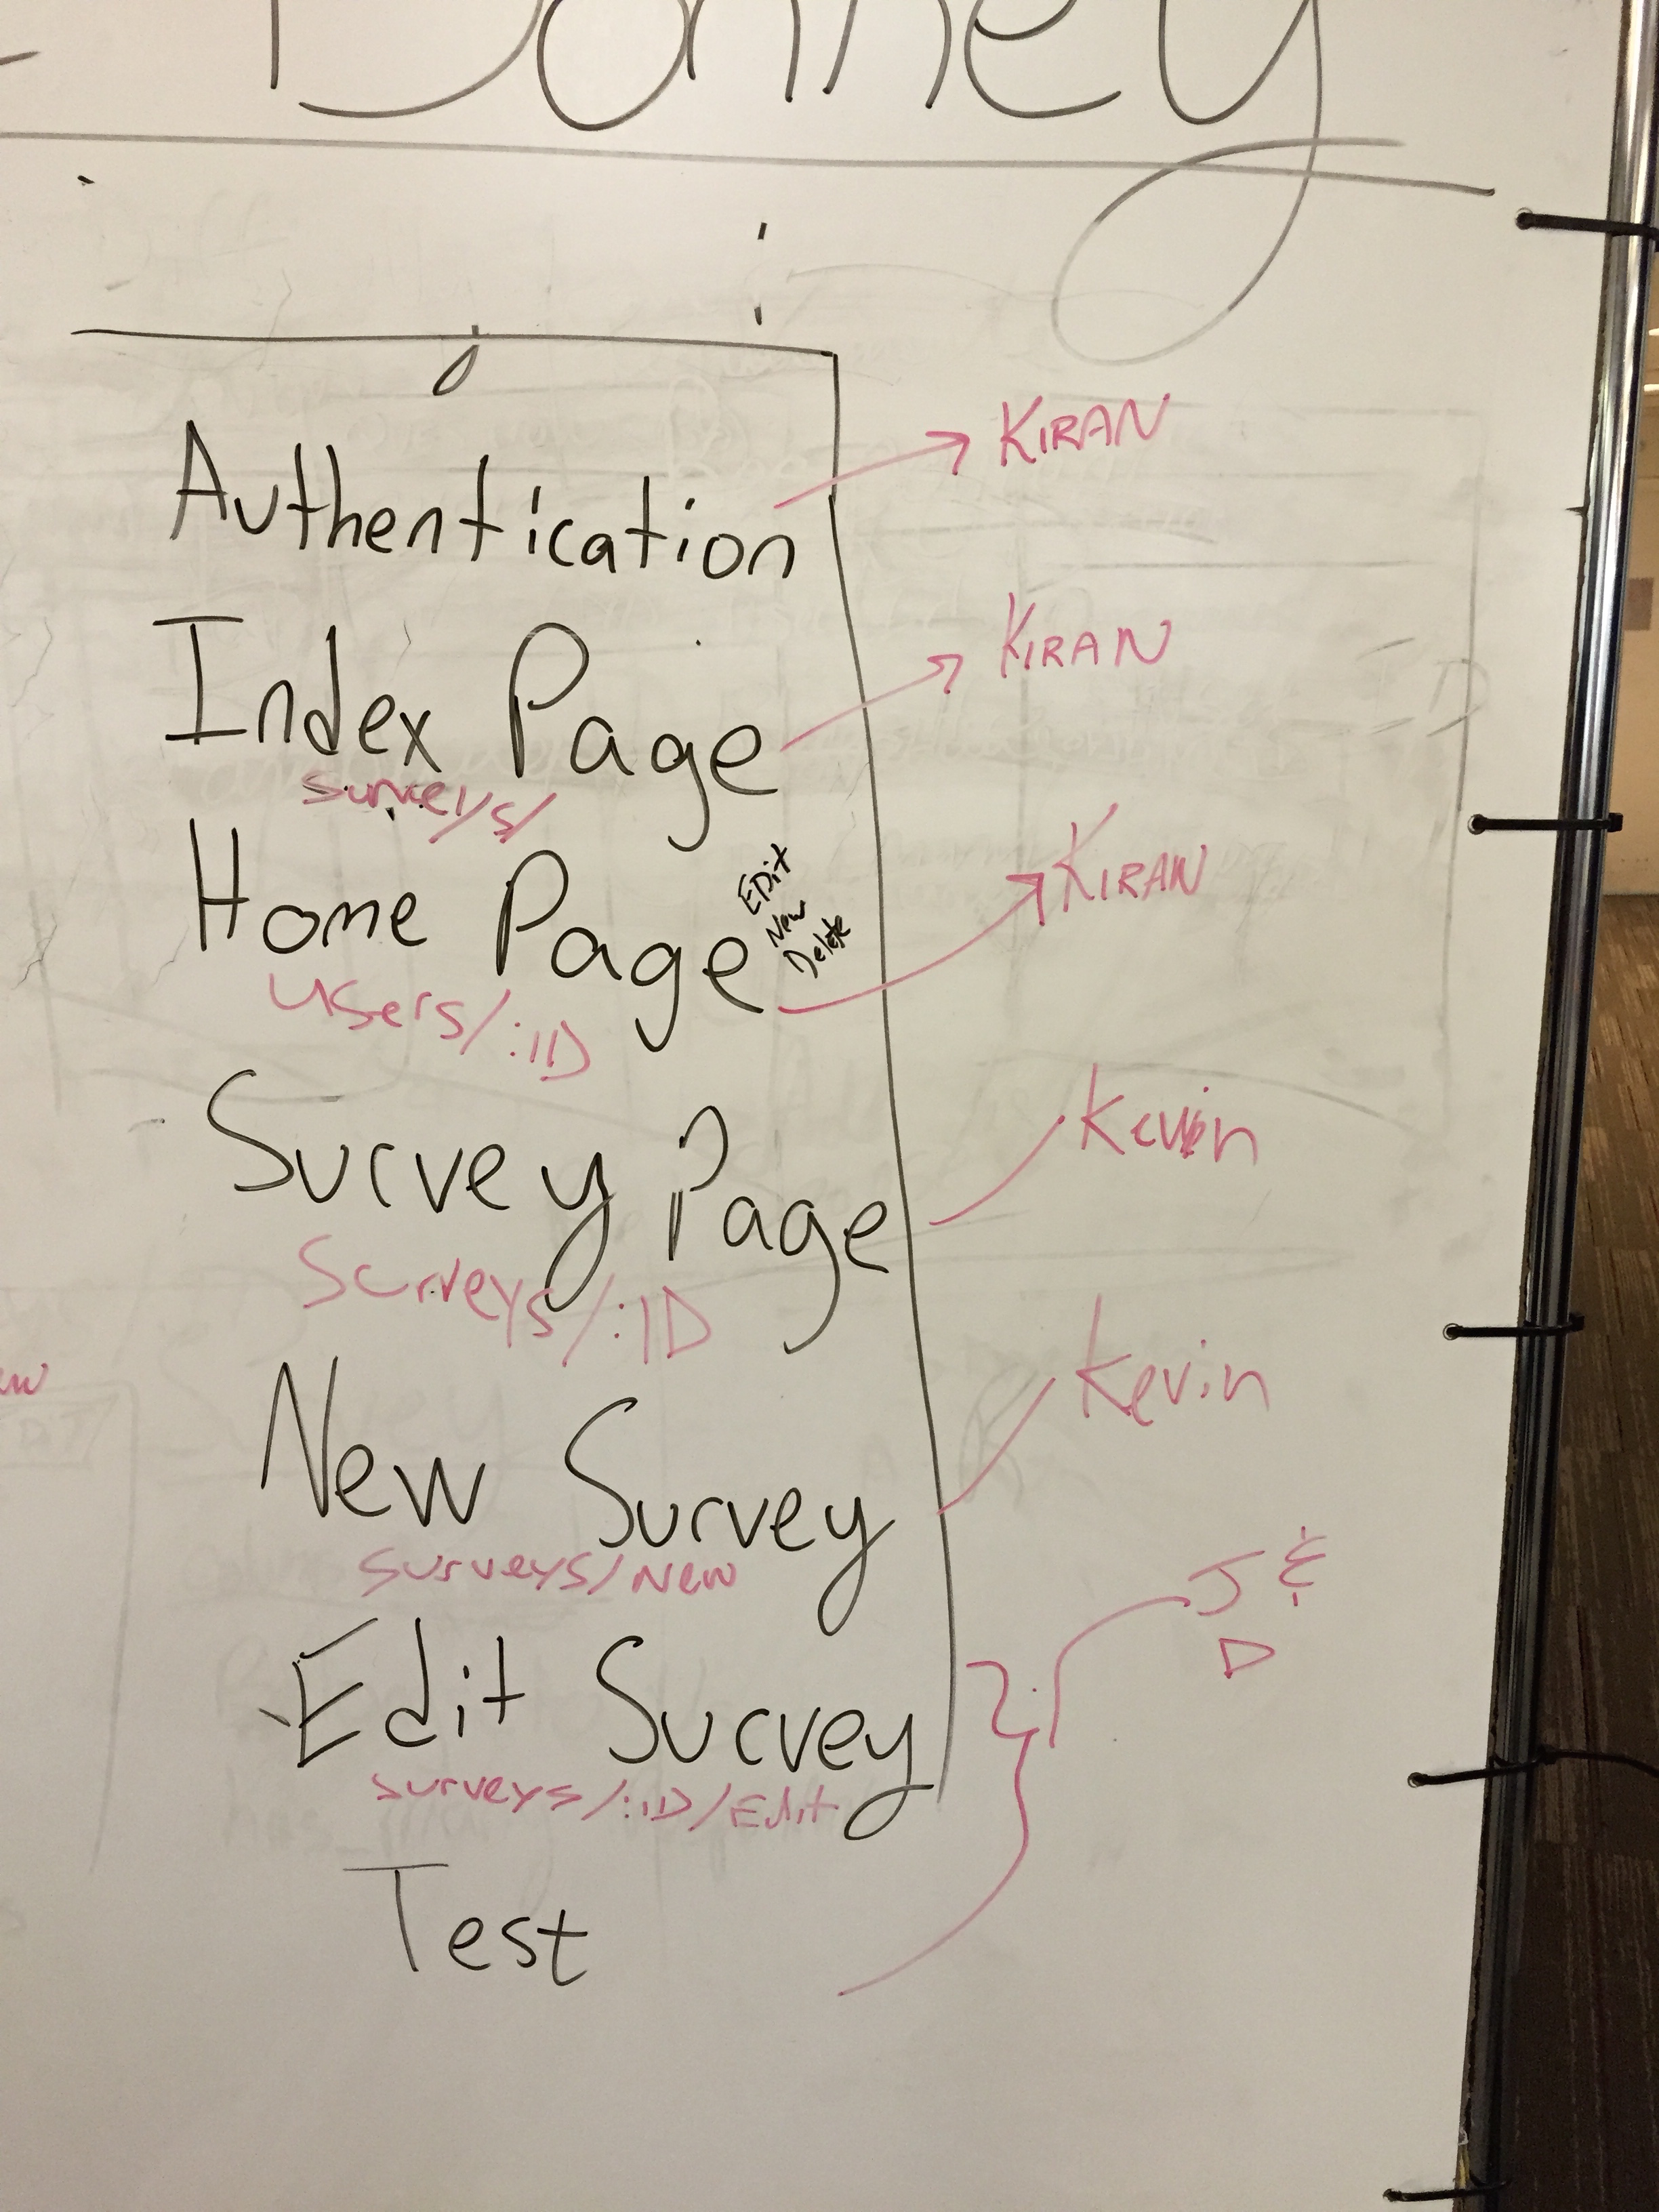 Authentication → KIRAN
Index Page → KIRAN
surveys/
Home Page → KIRAN
EDit
New
Delete
Users/:ID
Survey Page Kevin
Surveys/:ID
New Survey Kevin
surveys/New
J &
D
Edit Survey
surveys/:ID/Edit
Test